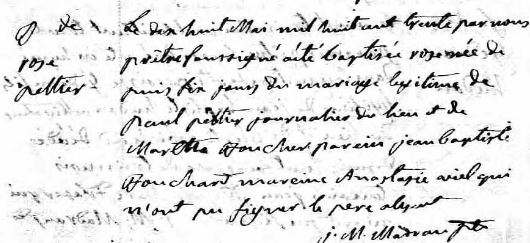 B de
rose
peltier
Le dix huit Mai mil huit cent trente par nous
prêtre soussigné a été baptisée rose née de
puis six jours du mariage legitime de
paul peltier journalier du lieu et de
Martha Houcher parein jean baptiste
Houchard mareine Anastasie viel qui
n'ont pu signer le pere absent
j. M. Madran ptr